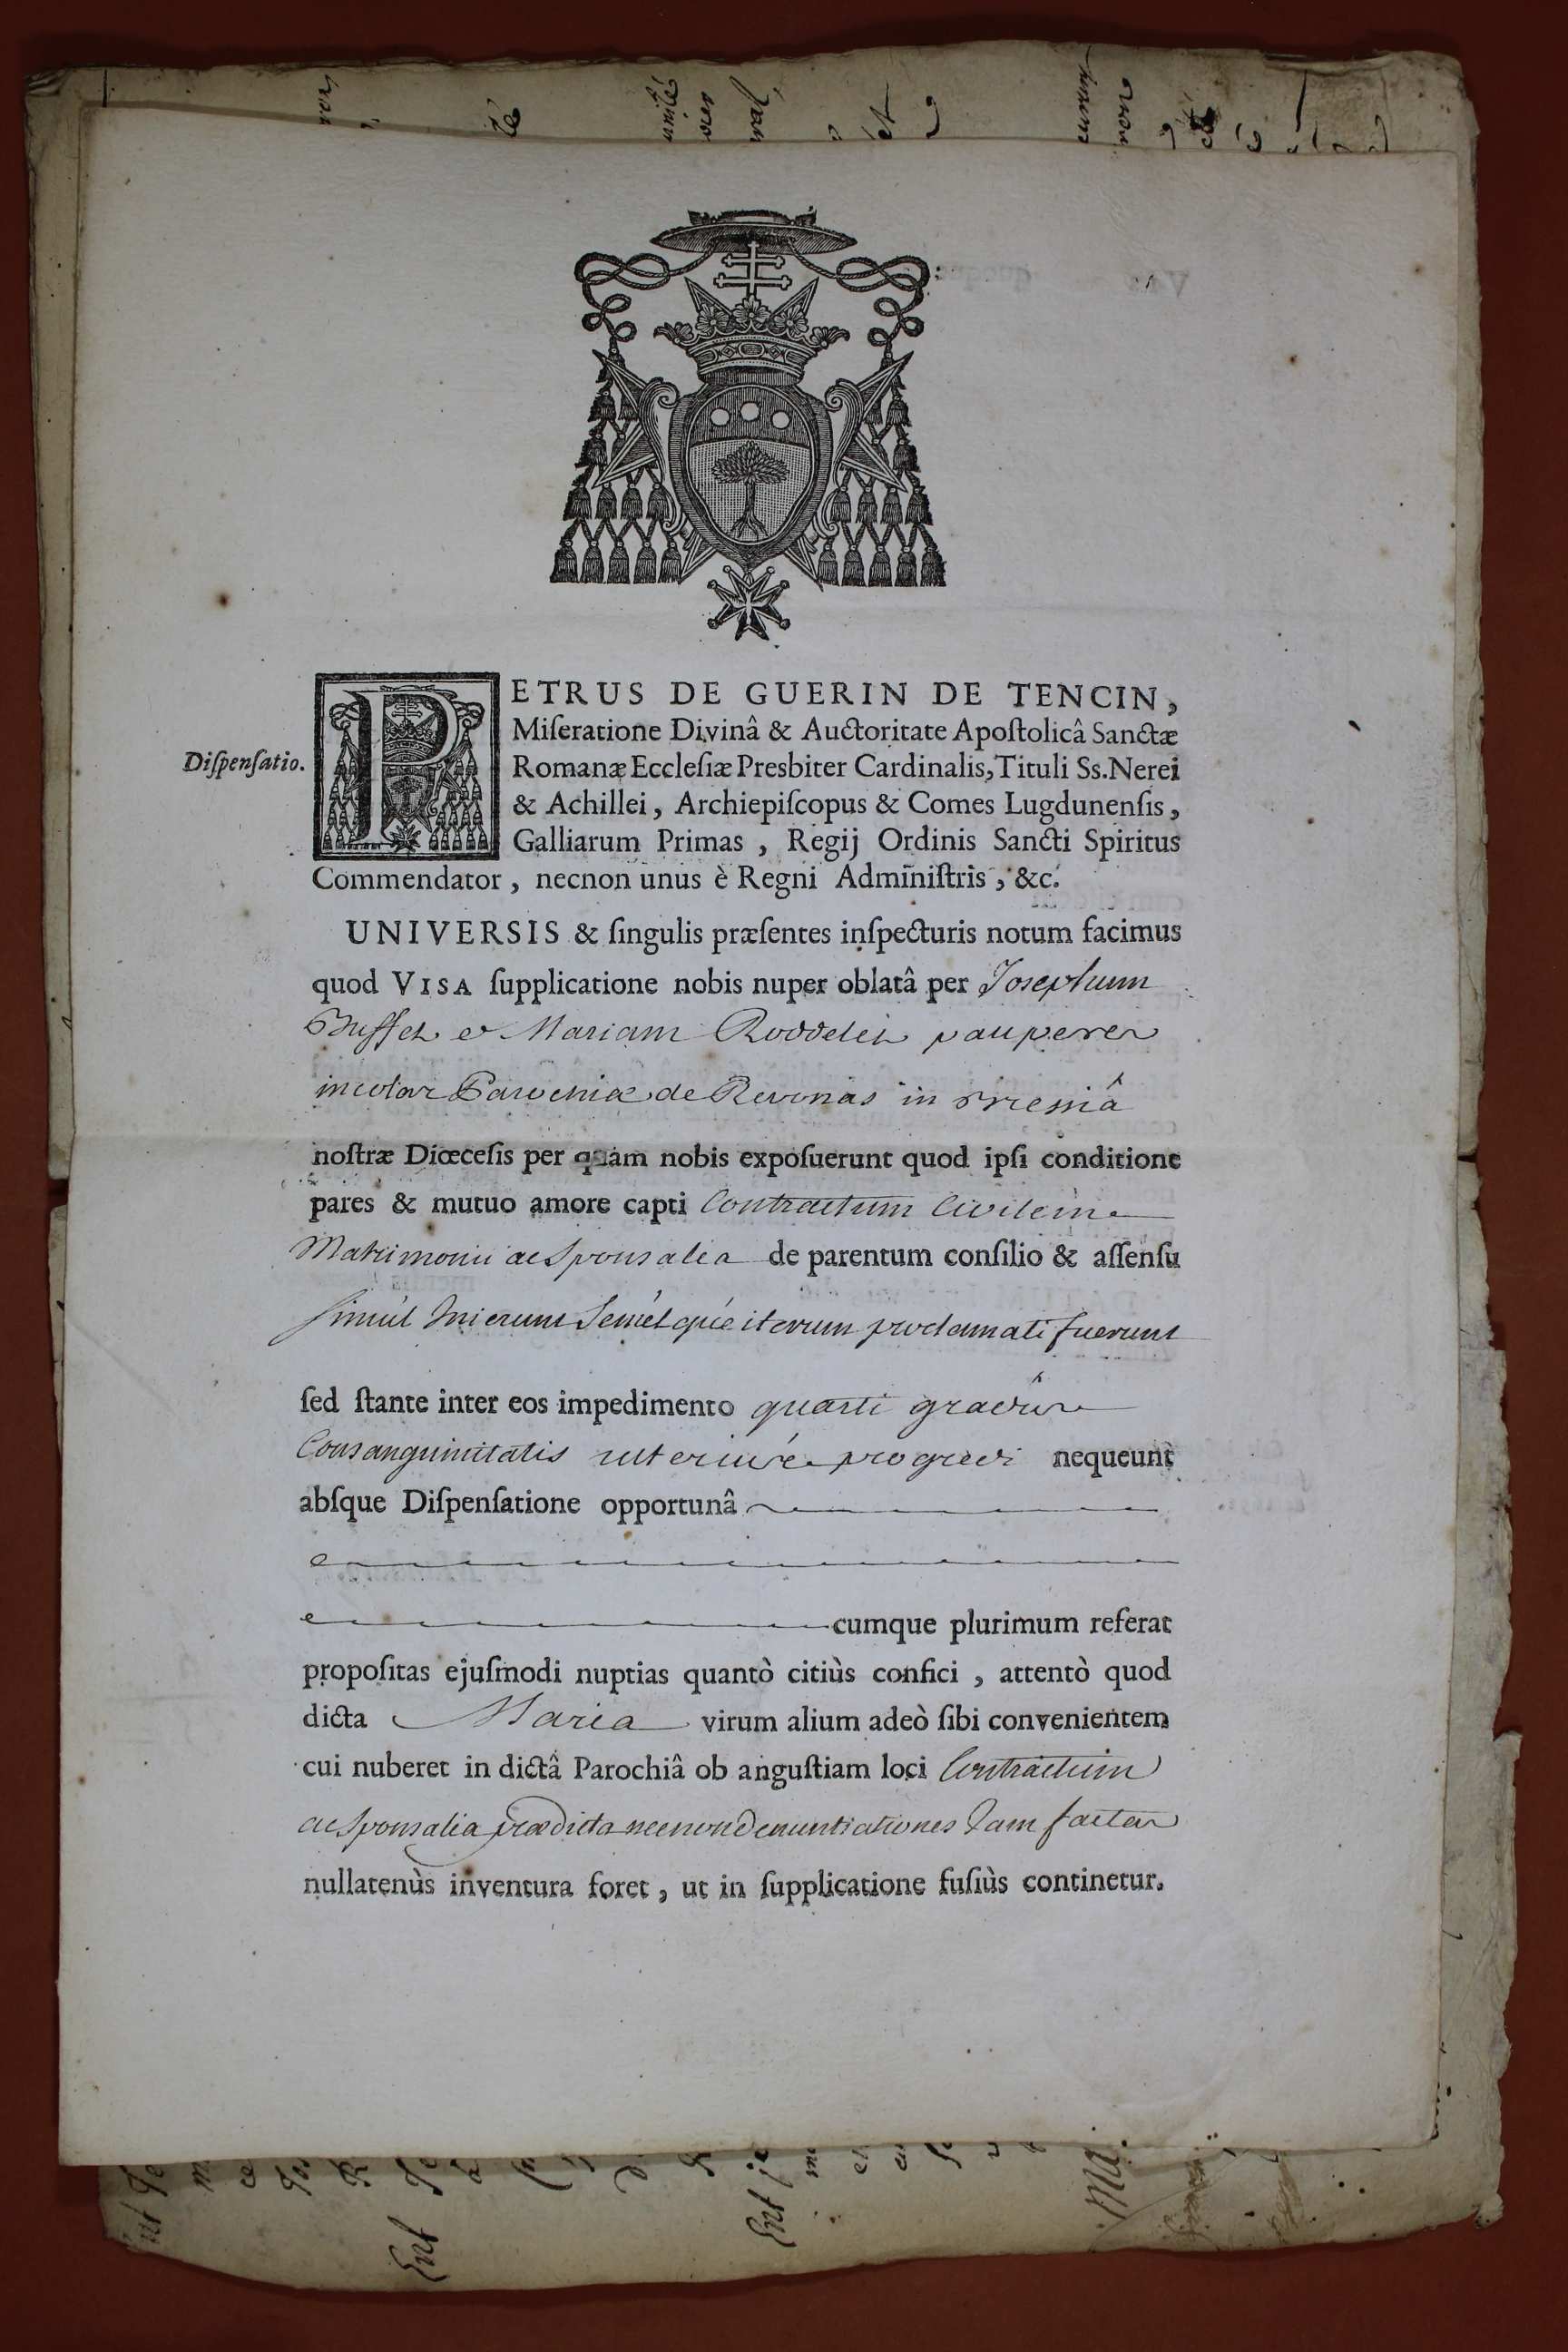 Diſpenſatio.
PETRUS DE GUERIN DE TENCIN,
Miſeratione Divinâ & Auctoritate Apoſtolicâ Sanctæ
Romanæ Eccleſiæ Presbiter Cardinalis, Tituli Ss. Nerei
& Achillei, Archiepiſcopus & Comes Lugdunenſis,
Galliarum Primas, Regij Ordinis Sancti Spiritus
Commendator, necnon unus è Regni Adminiſtris, &c.
UNIVERSIS & ſingulis præſentes inſpecturis notum facimus
quod VISA ſupplicatione nobis nuper oblatâ per Josephum
Buffet et Mariam pauperes
incolas Parochiæ de Revonas in Bressiâ
noſtræ Diœceſis per quam nobis expoſuerunt quod ipſi conditione
pares & mutuo amore capti Contractum Civilem
Matrimonii ac Sponsalia de parentum conſilio & aſſenſu
simùl Inierunt Semèlque iterum proclamati fuerunt
ſed ſtante inter eos impedimento quarti gradûs
Consanguinitatis ulteriùs progredi nequeunt
abſque Diſpenſatione opportunâ
cumque plurimum referat
propoſitas ejuſmodi nuptias quantò citiùs confici, attentò quod
dicta Maria virum alium adeò ſibi convenientem
cui nuberet in dictâ Parochiâ ob anguſtiam loci Contractum
ac Sponsalia prædicta necnon Denuntiationes Jam factas
nullatenùs inventura foret, ut in ſupplicatione fuſiùs continetur.